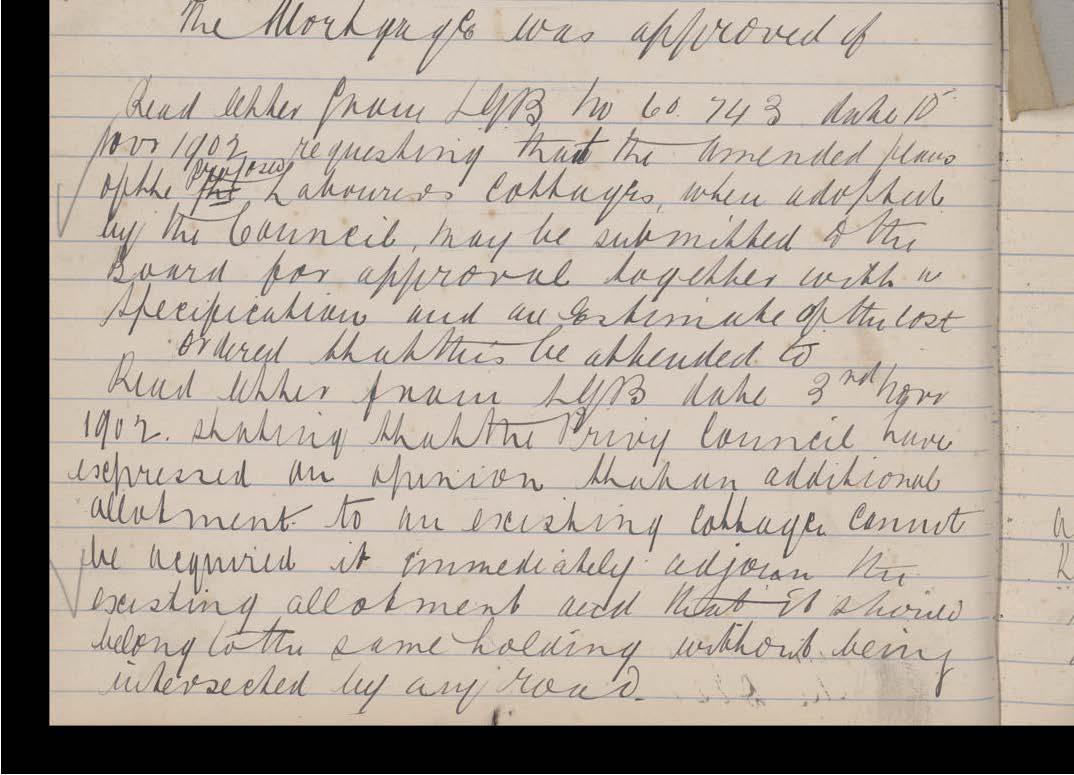 The Mortgage was approved of
Read letter from LGB No 60.743 date 15
Novr 1902 requesting that the amended plans
of the proposed Labourers Cottages, when adopted
by the Council, may be submitted to the
Board for approval together with a
specification and an Estimate of the Cost
Ordered that this be attended to
Read letter from LGB date 3rd Novr
1902. stating that the Privy Council have
expressed an opinion that an additional
allotment to an existing Cottage cannot
be acquired it immediately adjoin the
existing allotment and that it should
belong to the same holding without being
intersected by any road.